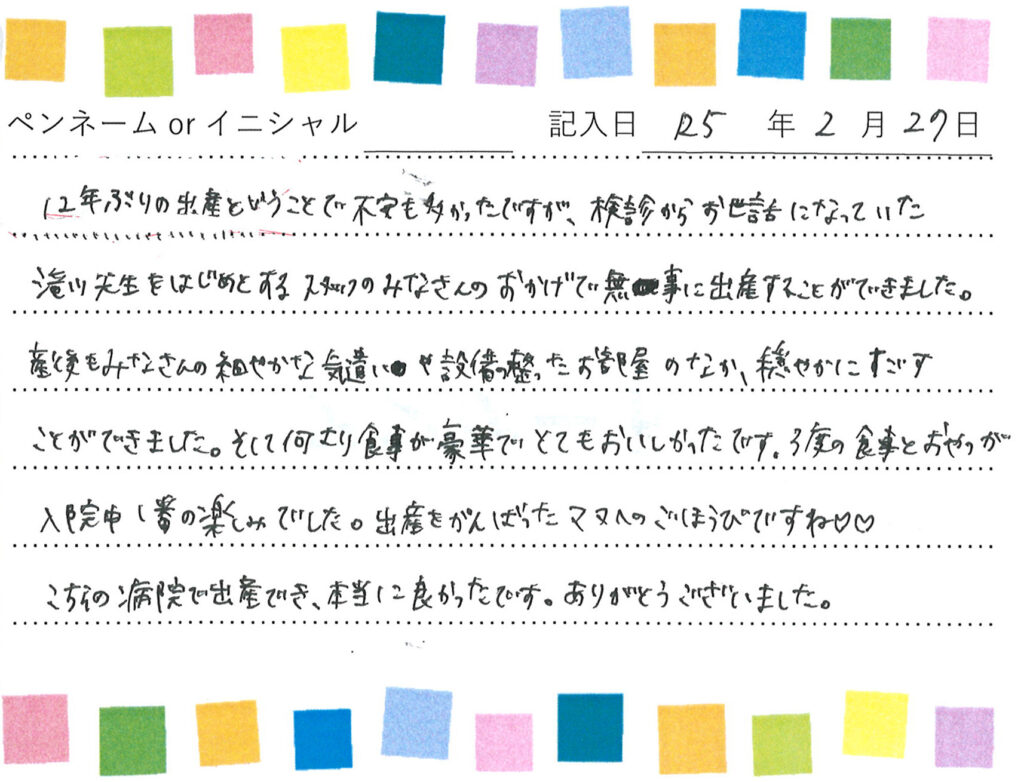 ペンネーム or イニシャル 記入日 R5 年 2 月 27 日
12年ぶりの出産ということで不安も多かったですが、検診からお世話になっていた
滝川先生をはじめとするスタッフのみなさんのおかげで無事に出産することができました。
産後もみなさんの細やかな気遣いや設備の整ったお部屋のなか、穏やかにすごす
ことができました。そして何より食事が豪華でとてもおいしかったです。3度の食事とおやつが
入院中1番の楽しみでした。出産をがんばったママへのごほうびですね♡♡
こちらの病院で出産でき、本当に良かったです。ありがとうございました。